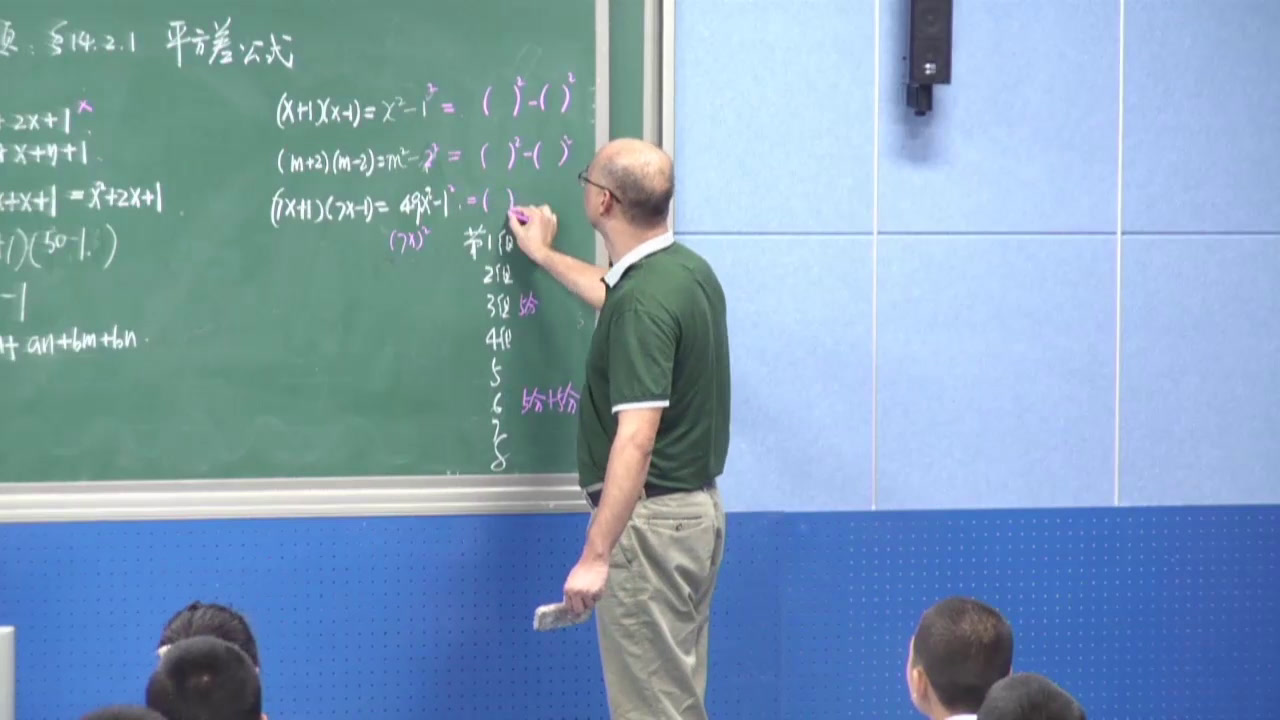 题：§14.2.1 平方差公式
+2x+1 x
+x+n+1
x+x+1=x²+2x+1
+1)(50-1.)
-1
+an+bm+bn.
(x+1)(x-1)=x²-1²=( )²-( )²
(m+2)(m-2)=m²-2²=( )²-( )²
(7x+1)(7x-1)=49x²-1².=( )
(7x)²
第1组
2组
3组 5分
4组
5
6 5分+5分
7
8